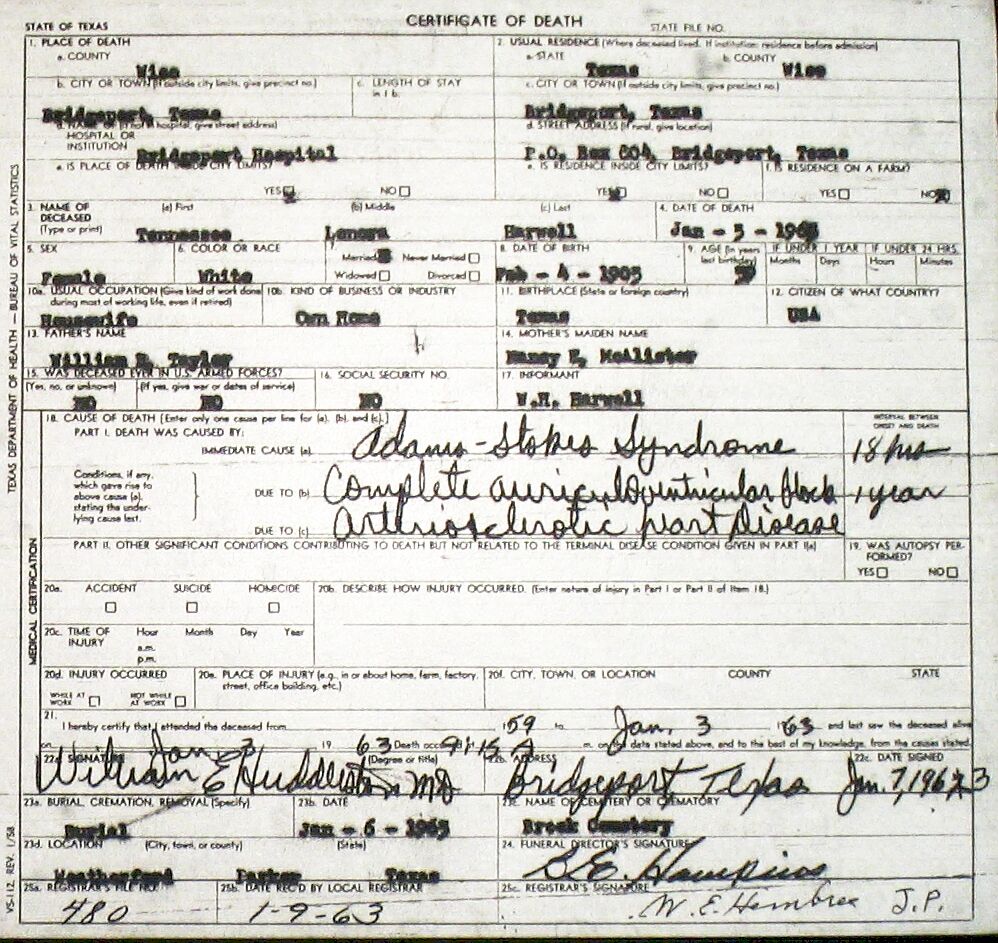 CERTIFICATE OF DEATH
STATE OF TEXAS STATE FILE NO.
1. PLACE OF DEATH 2. USUAL RESIDENCE (Where deceased lived. If institution: residence before admission)
a. COUNTY a. STATE b. COUNTY
Wise Texas Wise
b. CITY OR TOWN (If outside city limits, give precinct no.) c. LENGTH OF STAY in 1 b. c. CITY OR TOWN (If outside city limits, give precinct no.)
Bridgeport, Texas Bridgeport, Texas
d. NAME OF (If not in hospital, give street address) HOSPITAL OR INSTITUTION d. STREET ADDRESS (If rural, give location)
Bridgeport Hospital P.O. Box 604, Bridgeport, Texas
e. IS PLACE OF DEATH INSIDE CITY LIMITS? e. IS RESIDENCE INSIDE CITY LIMITS? f. IS RESIDENCE ON A FARM?
YES NO YES NO YES NO
3. NAME OF DECEASED (Type or print) (a) First (b) Middle (c) Last 4. DATE OF DEATH
Tennessee Lenora Harwell Jan - 5 - 1963
5. SEX 6. COLOR OR RACE Married Never Married Widowed Divorced 8. DATE OF BIRTH 9. AGE (In years last birthday) IF UNDER 1 YEAR IF UNDER 24 HRS.
Months Days Hours Minutes
Female White Feb - 4 - 1903 59
10a. USUAL OCCUPATION (Give kind of work done during most of working life, even if retired) 10b. KIND OF BUSINESS OR INDUSTRY 11. BIRTHPLACE (State or foreign country) 12. CITIZEN OF WHAT COUNTRY?
Housewife Own Home Texas USA
13. FATHER'S NAME 14. MOTHER'S MAIDEN NAME
William Taylor Nancy McAlister
15. WAS DECEASED EVER IN U.S. ARMED FORCES? 16. SOCIAL SECURITY NO. 17. INFORMANT
(Yes, no, or unknown) (If yes, give war or dates of service)
NO NO NO W.H. Harwell
18. CAUSE OF DEATH [Enter only one cause per line for (a), (b), and (c).] INTERVAL BETWEEN ONSET AND DEATH
PART I. DEATH WAS CAUSED BY:
IMMEDIATE CAUSE (a) Adams-Stokes Syndrome 18 hrs
Conditions, if any, which gave rise to above cause (a), stating the underlying cause last.
DUE TO (b) Complete auriculoventricular block 1 year
DUE TO (c) Arteriosclerotic heart Disease
PART II. OTHER SIGNIFICANT CONDITIONS CONTRIBUTING TO DEATH BUT NOT RELATED TO THE TERMINAL DISEASE CONDITION GIVEN IN PART I(a) 19. WAS AUTOPSY PERFORMED?
YES NO
20a. ACCIDENT SUICIDE HOMICIDE 20b. DESCRIBE HOW INJURY OCCURRED. (Enter nature of injury in Part I or Part II of Item 18.)
20c. TIME OF INJURY Hour Month Day Year
a.m.
p.m.
20d. INJURY OCCURRED 20e. PLACE OF INJURY (e.g., in or about home, farm, factory, street, office building, etc.) 20f. CITY, TOWN, OR LOCATION COUNTY STATE
WHILE AT WORK NOT WHILE AT WORK
21. I hereby certify that I attended the deceased from 1959 to Jan. 3 1963 and last saw the deceased alive
on Jan. 3 1963 Death occurred at 9:15 A m. on the date stated above, and to the best of my knowledge, from the causes stated.
22a. SIGNATURE (Degree or title) 22b. ADDRESS 22c. DATE SIGNED
William E Huddleston MD Bridgeport, Texas Jan. 7, 1963
23a. BURIAL, CREMATION, REMOVAL (Specify) 23b. DATE 23c. NAME OF CEMETERY OR CREMATORY
Burial Jan - 6 - 1963 Brock Cemetery
23d. LOCATION (City, town, or county) (State) 24. FUNERAL DIRECTOR'S SIGNATURE
Weatherford Parker Texas B.E. Hawkins
25a. REGISTRAR'S FILE NO. 25b. DATE REC'D BY LOCAL REGISTRAR 25c. REGISTRAR'S SIGNATURE
480 1-9-63 W. E. Hembree J.P.
TEXAS DEPARTMENT OF HEALTH — BUREAU OF VITAL STATISTICS
MEDICAL CERTIFICATION
VS-112 REV. 1/58